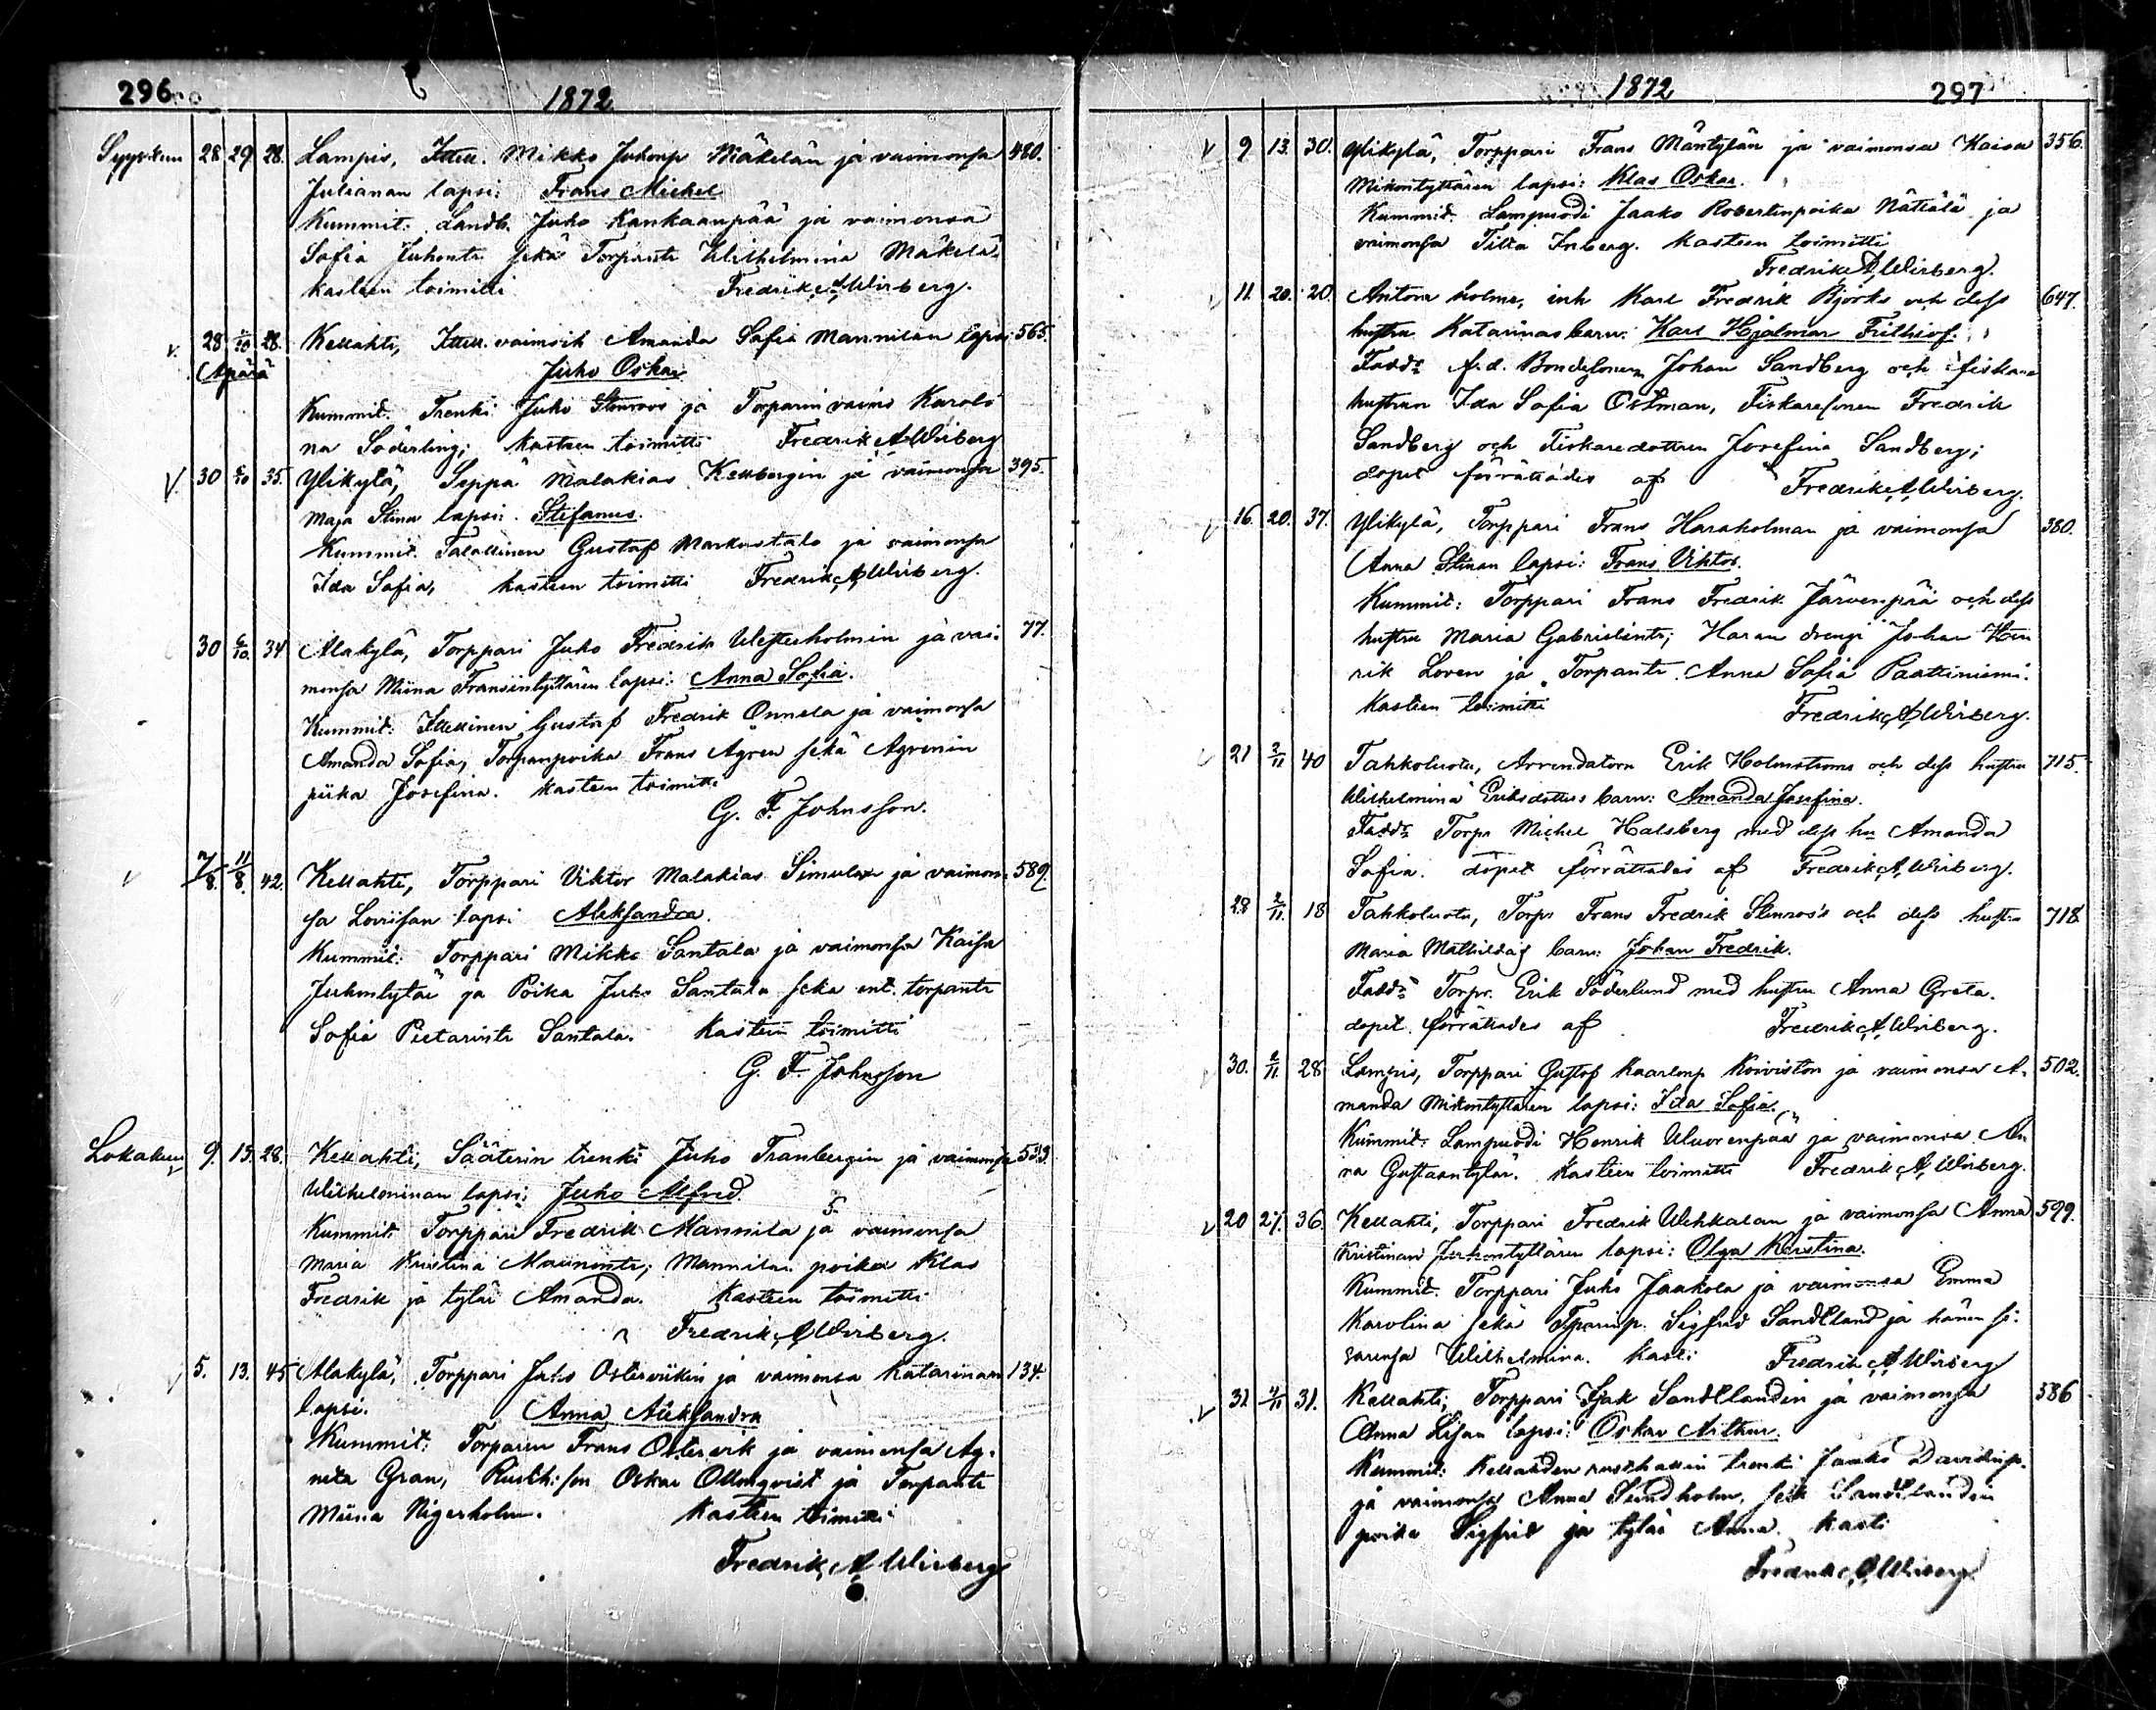 296
1872
Syyskuu 28 29 28. Lampis, Itell. Mikko Juhonp Mäkelän ja vaimonsa 480.
Julianan lapsi: Frans Michel
Kummit: Landb. Juho Kankaanpää ja vaimonsa
Sofia Juhontr sekä Torpantr Wilhelmina Mäkelä
kasteen toimitti Fredrik A Wirberg.
v. 28 1/10 28. Kellahti, Itell. vaimoih Amanda Sofia Mannilan lapsi 565.
(Äpärä Juho Oskar
Kummit. Trenki Juho Stenroos ja Torparin vaimo Karoli
na Söderling; Kasteen toimitti Fredrik A Wirberg
V. 30 6/10 35. Ylikylä, Seppä Malakias Kellbergin ja vaimonsa 395.
Maja Stina lapsi: Stefanus.
Kummit. Talollinen Gustaf Markustalo ja vaimonsa
Ida Sofia, kasteen toimitti Fredrik A Wirberg.
30 6/10. 34 Alakylä, Torppari Juho Fredrik Westerholmin ja vai- 77.
monsa Miina Fransintyttären lapsi: Anna Sofia.
Kummit: Itellinen Gustaf Fredrik Onnela ja vaimonsa
Amanda Sofia, Torpanpoika Frans Ågren sekä Agrenin
piika Josefina. kasteen toimitti
G. F. Johnsson.
v 7/8. 11/8. 42. Kellahti, Torppari Viktor Malakias Simulan ja vaimon- 589.
sa Loviisan lapsi Aleksandra.
Kummit: Torppari Mikko Santala ja vaimonsa Kaisa
Juhontytär ja Poika Juho Santala seka ent. torpantr
Sofia Pietarintr Santala. Kasteen toimitti
G. F. Johnsson
Lokakuu 9. 13. 28. Kellahti, Sääterin trenki Juho Tranbergin ja vaimonsa 533
Wilhelminan lapsi: Juho Alfred.
Kummit. Torppari Fredrik Mannila ja vaimonsa
Maria Kristina Maunontr; Mannilan poika Klas
Fredrik ja tytär Amanda. Kasteen toimitti
Fredrik A Wirberg.
5. 13. 45 Alakylä, Torppari Juho Osterviikin ja vaimonsa Katarinan 134.
lapsi. Anna Aleksandra
Kummit: Torparin Frans Ostervik ja vaimonsa Ag-
neta Gran, Rusth: son Oskar Ollonqvist ja Torpantr
Miina Nigerholm. Kasteen toimitti
Fredrik A Wirberg
1872
297
v 9 13. 30. Ylikylä, Torppari Frans Mäntylän ja vaimonsa Kaisa 356.
Mikontyttären lapsi: Klas Oskar.
Kummit. Lampuodi Jaako Robertinpoika Nättälä ja
vaimonsa Tilta Inberg. Kasteen toimitti
Fredrik A Wirberg.
11. 20. 20. Antons holme, inh Karl Fredrik Björks och dess 647.
hustru Katarinas barn: Karl Hjalmar Frithiof.
Faddr f.d. Bondesonen Johan Sandberg och fiskare
hustrun Ida Sofia Ostman, Fiskaresonen Fredrik
Sandberg och Fiskaredottren Josefina Sandberg;
dopet förrättades af Fredrik A Wirberg.
16. 20. 37. Ylikylä, Torppari Frans Haraholman ja vaimonsa 380.
Anna Stinan lapsi: Frans Viktor.
Kummit: Torppari Frans Fredrik Järvenpää och dess
hustru Maria Gabrielintr; Haran drengi Johan Hen
rik Loven ja Torpantr. Anna Sofia Paattiniemi.
Kasteen toimitti Fredrik A Wirberg.
v 21 2/11 40 Tahkoluoto, Arrendatorn Erik Holmstroms och dess hustru 715.
Wilhelmina Eriksdotters barn: Amanda Josefina.
Faddr Torpr Michel Halsberg med dess hu Amanda
Sofia. dopet förrättades af Fredrik A Wirberg.
28 2/11. 18 Tahkoluoto, Torpr Frans Fredrik Stenros's och dess hustru 718
Maria Mathildas barn: Johan Fredrik.
Faddr Torpr. Erik Söderlund med hustru Anna Greta.
dopet förrättades af Fredrik A Wirberg.
30. 2/11. 28 Lampis, Torppari Gustaf Kaarlonp Koiviston ja vaimonsa A- 502.
manda Mikontyttären lapsi: Ida Sofia.
Kummit: Lampuodi Henrik Wuorenpää ja vaimonsa An
na Gustaantytär. Kasteen toimitti Fredrik A Wirberg.
v 20 27. 36. Kellahti, Torppari Fredrik Wehkalan ja vaimonsa Anna 599.
Kristinan Juhontyttären lapsi: Olga Kristina.
Kummit. Torppari Juho Jaakola ja vaimonsa Emma
Karolina sekä Tparinp. Sigfrid Sandblandja hänen si-
sarensa Wilhelmina. Kasti Fredrik A Wirberg
v 31 4/11 31. Kellahti, Torppari Isak Sandblandin ja vaimonsa 586
Anna Lisan lapsi: Oskar Arthur.
Kummit: Kellahden rusthollin trenki Jaako Davidinp.
ja vaimonsa Anna Sundholm, sek Sandblandin
poika Sigfrid ja tytär Anna. Kasti
Fredrik A Wirberg